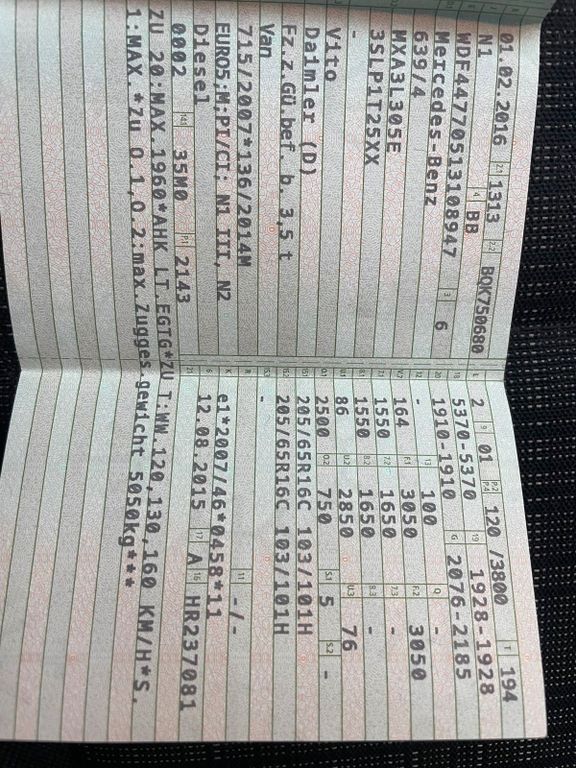 01.02.2016 2.1 1313 2.2 BQK750680
N1 4 BB
WDF44770513108947 3 6
Mercedes-Benz
639/4
MXA3L305E
3SLP1T25XX
-
Vito
Daimler (D)
Fz.z.Gü.bef. b. 3,5 t
Van
715/2007*136/2014M
EURO5;M:PI/CI; N1 III, N2
Diesel
0002 14.1 35M0 P.1 2143
L 2 9 01 P.2 P.4 120 /3800 T 194
18 5370-5370 19 1928-1928
20 1910-1910 G 2076-2185
12 - 13 100 Q -
V.7 164 F.1 3050 F.2 3050
7.1 1550 7.2 1650 7.3 -
8.1 1550 8.2 1650 8.3 -
U.1 86 U.2 2850 U.3 76
O.1 2500 O.2 750 S.1 5 S.2 -
15.1 205/65R16C 103/101H
15.2 205/65R16C 103/101H
15.3 -
R 11 -/-
K e1*2007/46*0458*11
6 12.08.2015 17 A 16 HR237081
21
ZU 20:MAX.1960*AHK LT.EGTG*ZU T:WW.120,130,160 KM/H*S.
1:MAX.*ZU O.1,O.2:max.Zugges.gewicht 5050kg***